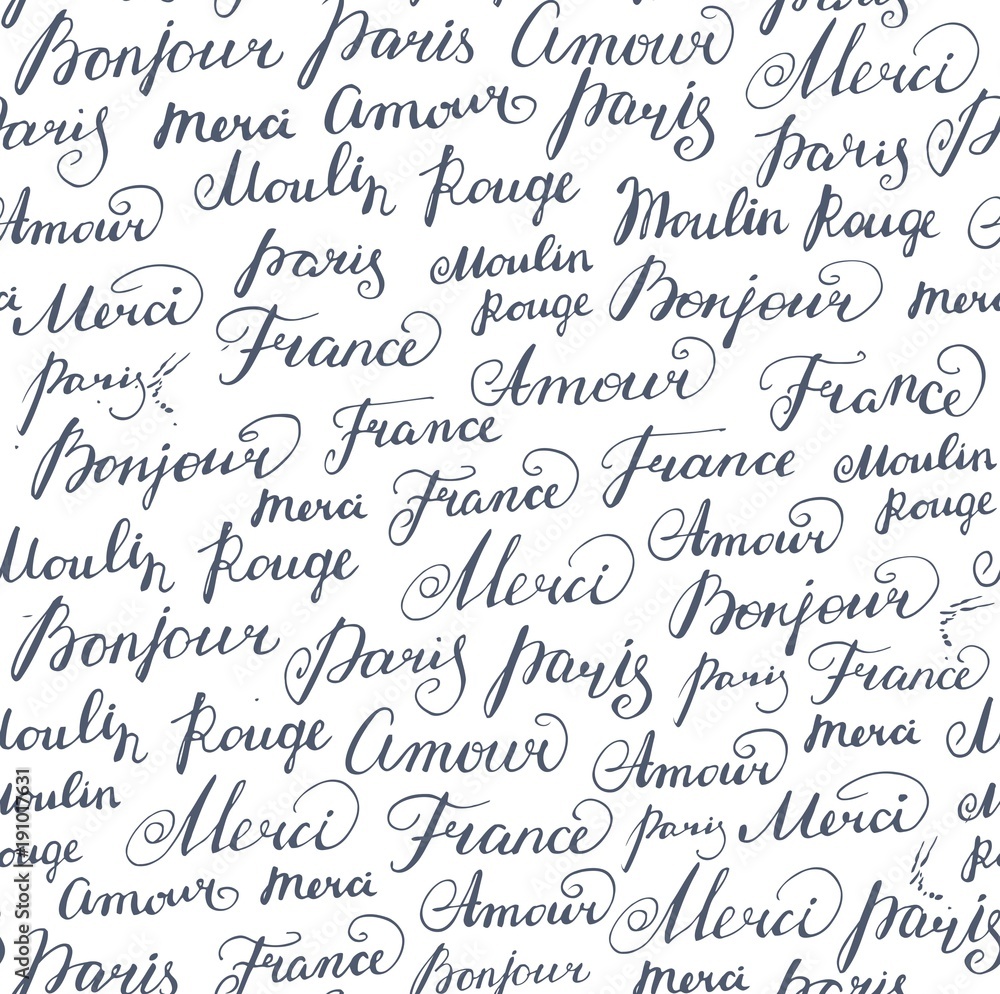 Paris
Bonjour Paris Amour Merci
Paris merci Amour Paris
Paris
Moulin Rouge
Amour Moulin Rouge
Paris Moulin
Rouge
Merci Bonjour merci
France
Paris Amour France
France
Bonjour France Moulin
Rouge
merci France Amour
Moulin Rouge Merci Bonjour
Bonjour Paris Paris Paris France
Moulin Rouge Amour Amour merci
Moulin
Rouge
Merci France Paris Merci
Amour merci Amour Merci Paris
Paris France Bonjour merci Paris
Adobe Stock | #191017631